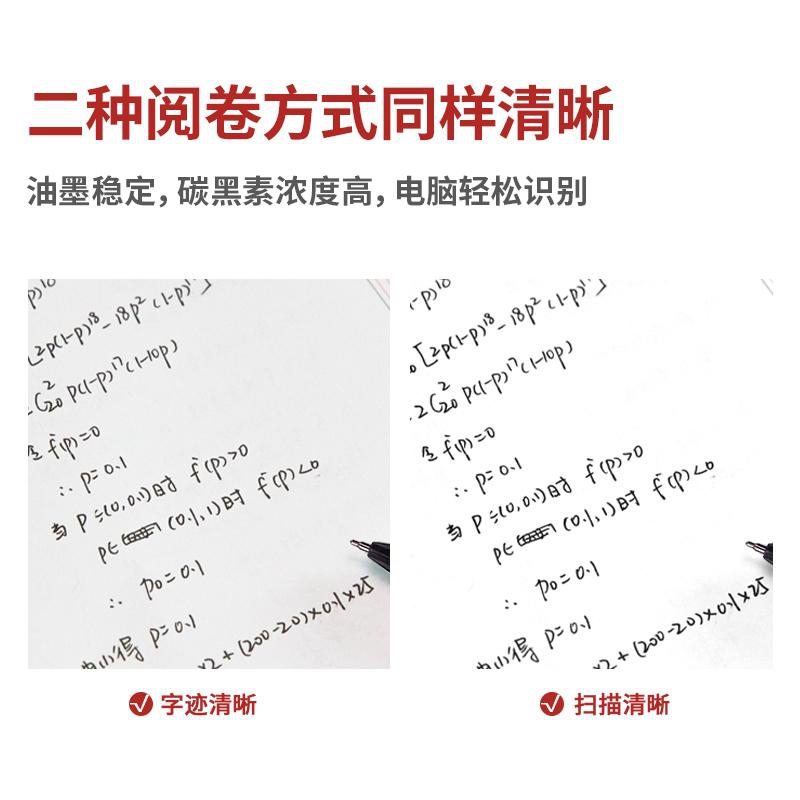 二种阅卷方式同样清晰
油墨稳定，碳黑素浓度高，电脑轻松识别
[2p(1-p)¹⁸-18p²(1-p)¹⁷]
2C₂₀² p(1-p)¹⁷(1-10p)
令 f'(p)=0
∴ p=0.1
当 P=(0,0.1)时 f'(p)>0
p∈ (0.1,1)时 f'(p)<0
∴ p₀=0.1
得 p=0.1
x2+(200-20)×0.1×25
o[2p(1-p)¹⁸-18p²(1-p)¹⁷]
2C₂₀² p(1-p)¹⁷(1-10p)
令 f'(p)=0
∴ p=0.1
当 P=(0,0.1)时 f'(p)>0
p∈ (0.1,1)时 f'(p)<0
∴ p₀=0.1
得 p=0.1
x2+(200-20)×0.1×25
字迹清晰
扫描清晰